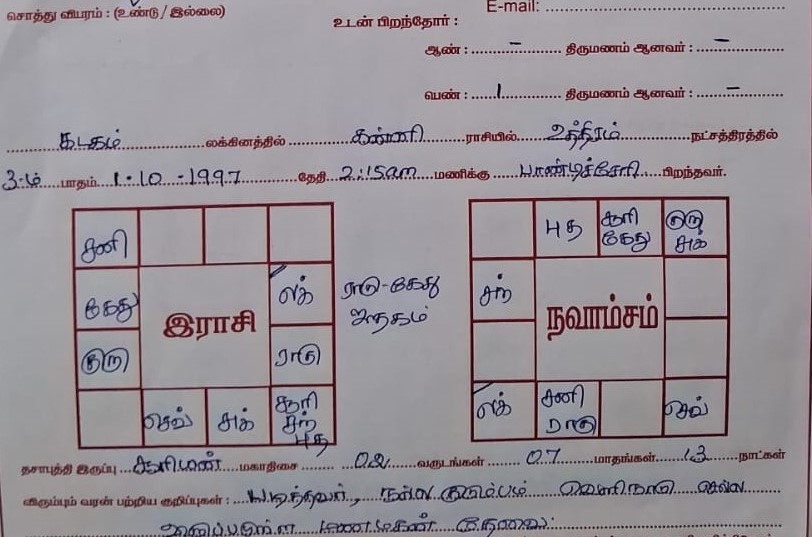 சொத்து விபரம் : (உண்டு / இல்லை)
E-mail: ....................
உடன் பிறந்தோர் :
ஆண் : ....–.... திருமணம் ஆனவர் : ....–....
பெண் : ....1.... திருமணம் ஆனவர் : ....–....
கடகம் லக்கினத்தில் கன்னி ராசியில் உத்திரம் நட்சத்திரத்தில்
3-ம் பாதம் 1-10-1997 தேதி 2:15am மணிக்கு பாண்டிச்சேரி பிறந்தவர்.
சனி
புத சூரி கேது குரு சுக்
கேது லக்
ராகு-கேது ஜாதகம்
சந்
இராசி
நவாம்சம்
குரு ராகு
செவ் சுக் சூரி சந் புத
லக் சனி ராகு செவ்
தசாபுத்தி இருப்பு சூரியன் மகாதிசை 02 வருடங்கள் 07 மாதங்கள் 13 நாட்கள்
விரும்பும் வரன் பற்றிய குறிப்புகள் : படித்தவர், நல்ல குடும்பம் வெளிநாடு செல்ல
மணமகன் தேவை.